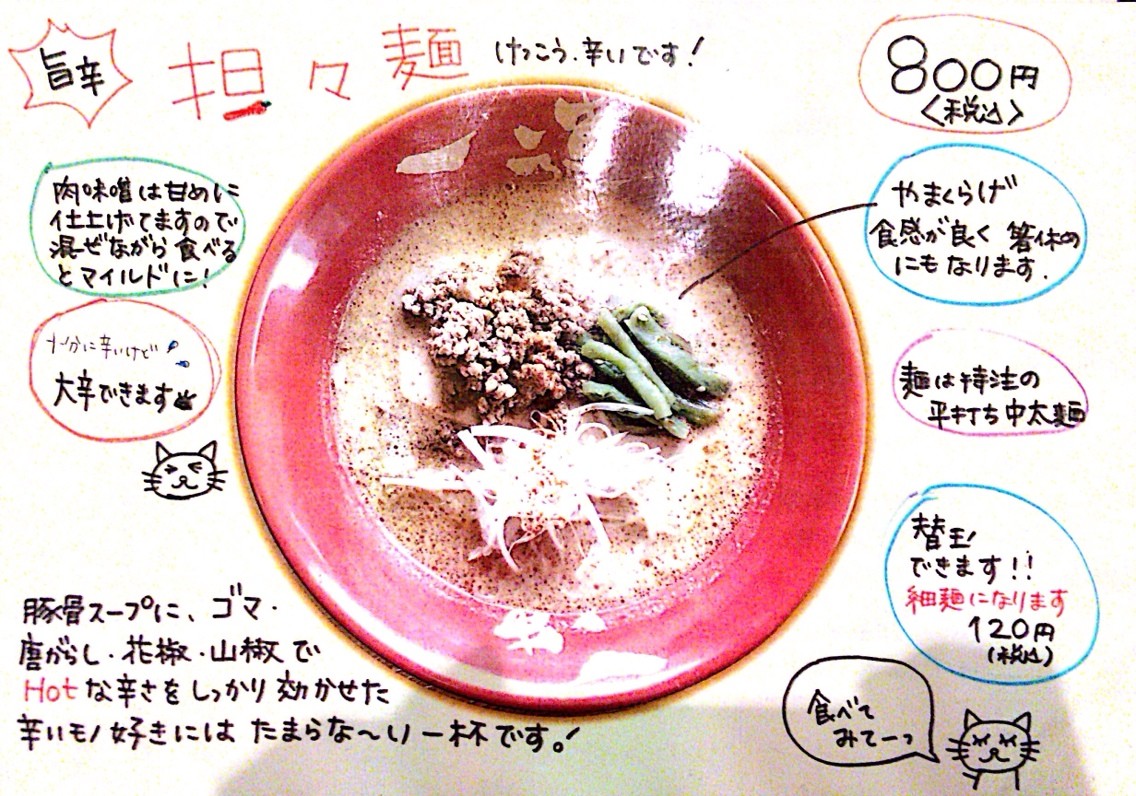 旨辛
担々麺
けっこう、辛いです!
800円
<税込>
肉味噌は甘めに
仕上げてますので
混ぜながら食べる
とマイルドに!
十分に辛いけど
大辛できます
やまくらげ
食感が良く 箸休め
にもなります.
麺は特注の
平打ち中太麺
替玉
できます!!
細麺になります
120円
(税込)
豚骨スープに、ゴマ・
唐がらし・花椒・山椒で
Hotな辛さをしっかり効かせた
辛いモノ好きには たまらな〜い一杯です。!
食べて
みてーっ